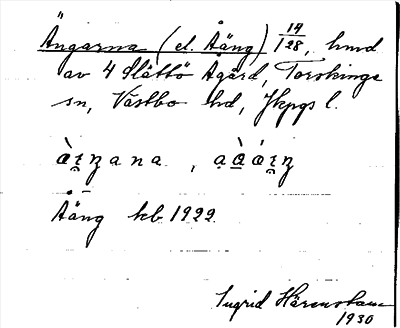 Ängarna (el. Åäng) 14/28, hmd
av 4 Slättö Ågård, Torskinge
sn, Västbo hd, Jkpgs l.
Åäng kb 1922.
Ingrid Härenstam
1930